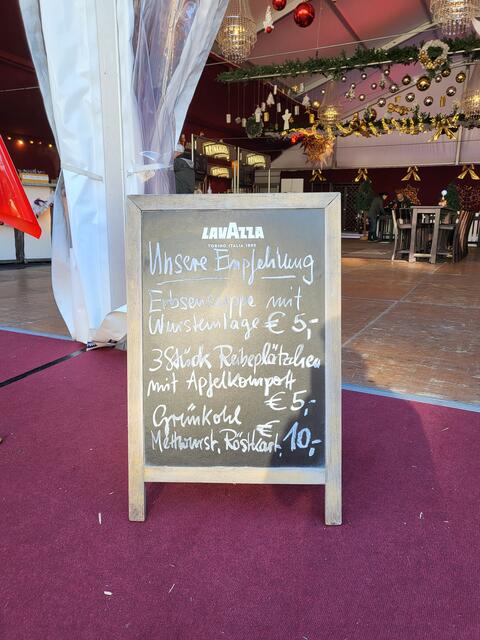 LAVAZZA
TORINO, ITALIA, 1895
Unsere Empfehlung
Erbsensuppe mit
Wursteinlage € 5,-
3 Stück Reibeplätzchen
mit Apfelkompott
€ 5,-
Grünkohl
Mettwurst, Röstkart. € 10,-